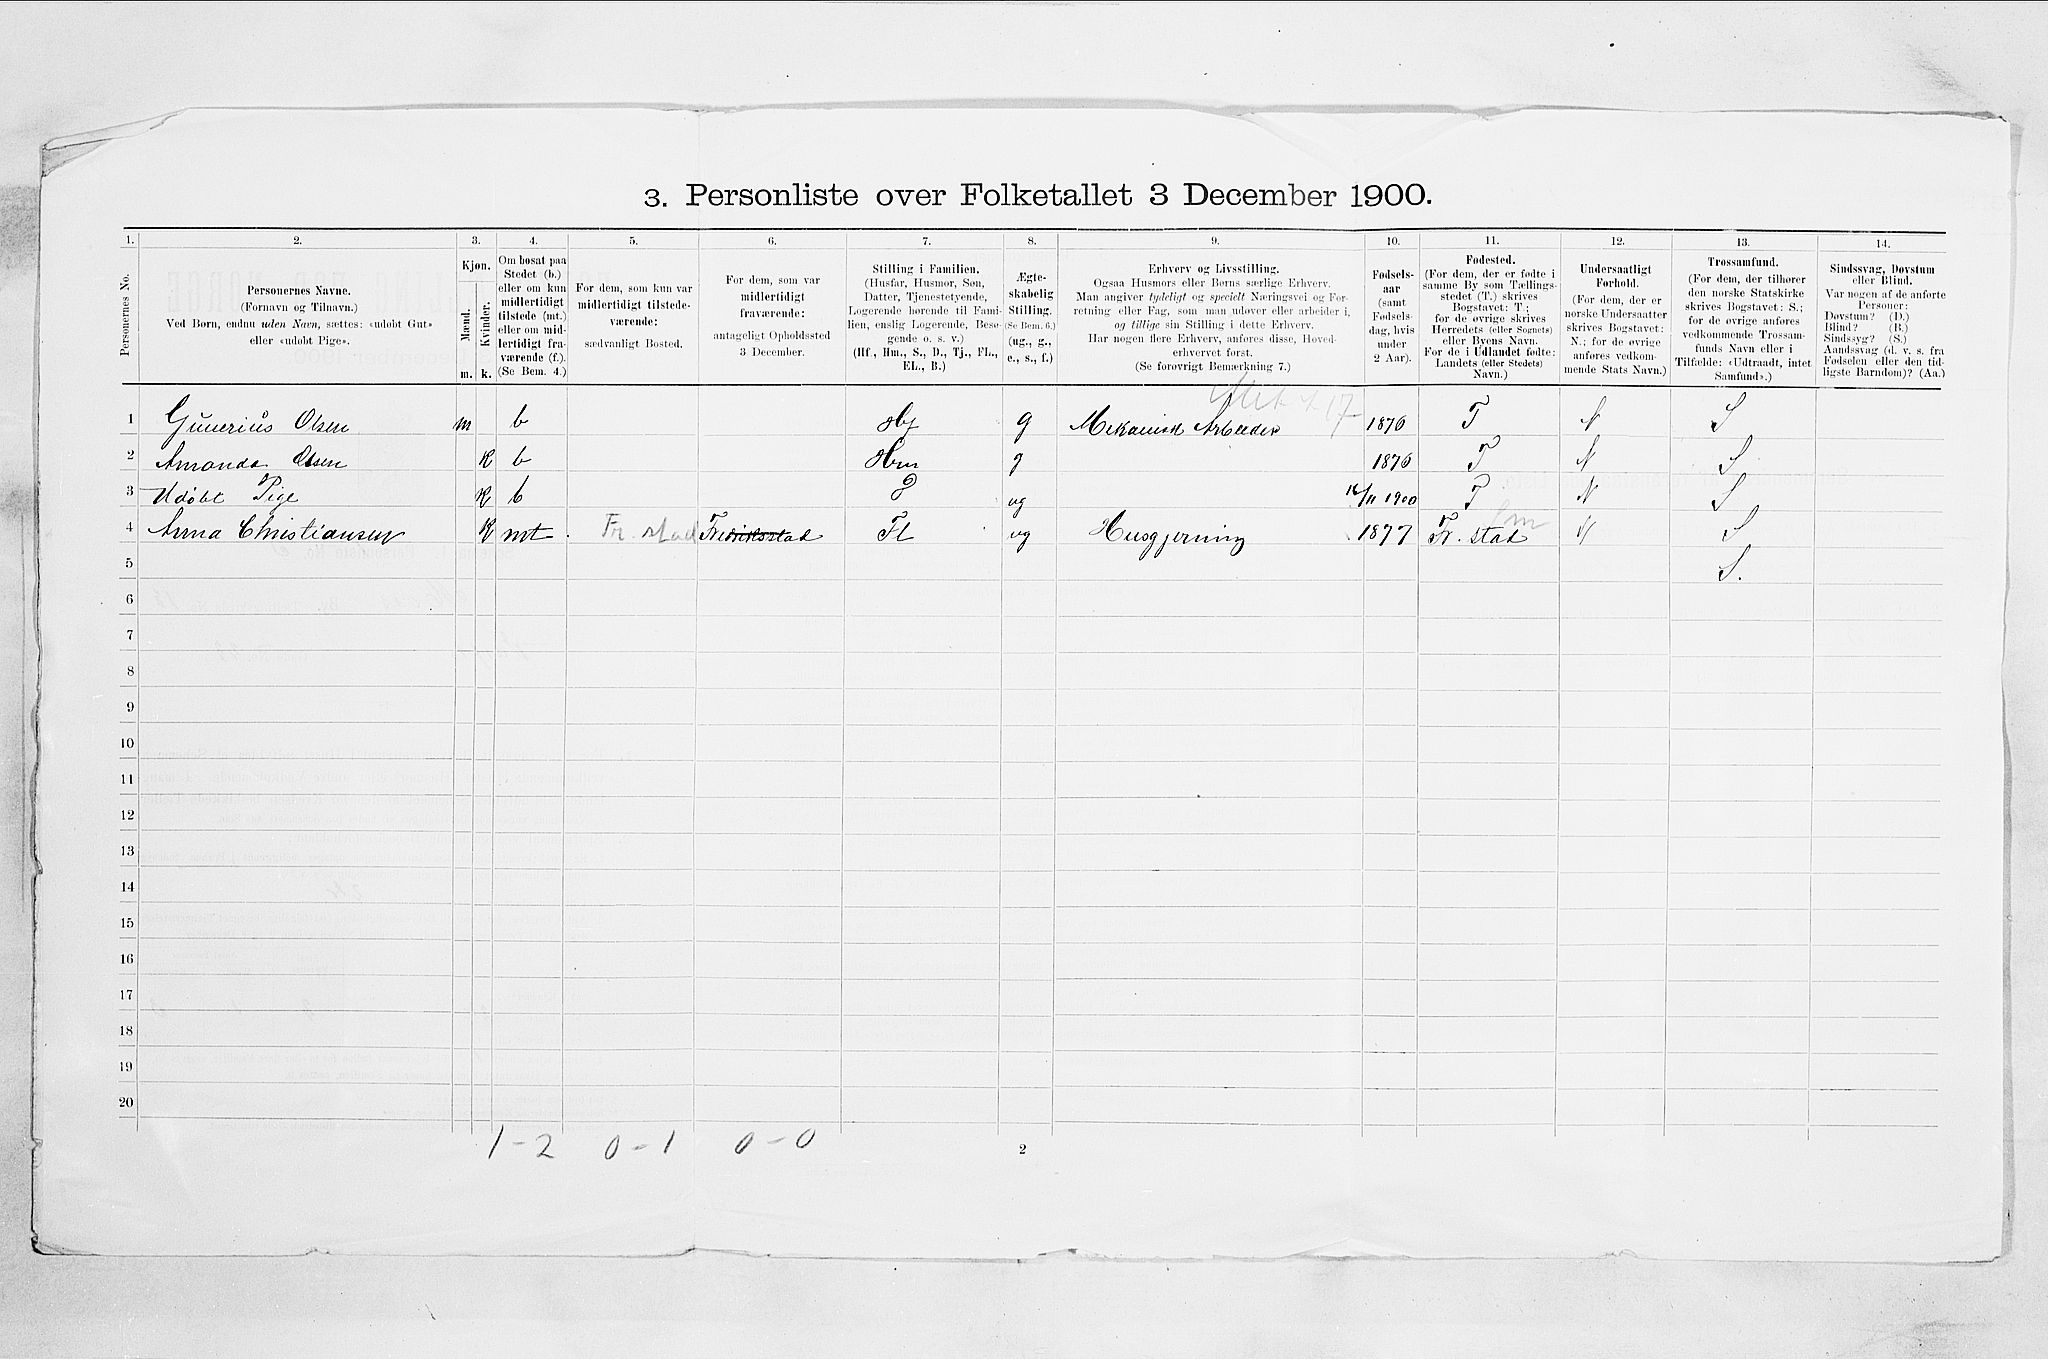 3. Personliste over Folketallet 3 December 1900.
1. 2. 3. 4. 5. 6. 7. 8. 9. 10. 11. 12. 13. 14.
Personernes No.
Personernes Navne.
(Fornavn og Tilnavn.)
Ved Børn, endnu uden Navn, sættes: «udøbt Gut»
eller «udøbt Pige».
Kjøn.
Mænd.
Kvinder.
m. k.
Om bosat paa
Stedet (b.)
eller om kun
midlertidigt
tilstede (mt.)
eller om mid-
lertidigt fra-
værende (f.).
(Se Bem. 4.)
For dem, som kun var
midlertidigt tilstede-
værende:
sædvanligt Bosted.
For dem, som var
midlertidigt
fraværende:
antageligt Opholdssted
3 December.
Stilling i Familien.
(Husfar, Husmor, Søn,
Datter, Tjenestetyende,
Logerende hørende til Fami-
lien, enslig Logerende, Besø-
gende o. s. v.)
(Hf., Hm., S., D., Tj., FL.,
EL., B.)
Ægte-
skabelig
Stilling.
(Se Bem. 6.)
(ug., g.,
e., s., f.)
Erhverv og Livsstilling.
Ogsaa Husmors eller Børns særlige Erhverv.
Man angiver tydeligt og specielt Næringsvei og For-
retning eller Fag, som man udøver eller arbeider i,
og tillige sin Stilling i dette Erhverv.
Har nogen flere Erhverv, anføres disse, Hoved-
erhvervet først.
(Se forøvrigt Bemærkning 7.)
Fødsels-
aar
(samt
Fødsels-
dag, hvis
under
2 Aar).
Fødested.
(For dem, der er fødte i
samme By som Tællings-
stedet (T.) skrives
Bogstavet: T.;
for de øvrige skrives
Herredets (eller Sognets)
eller Byens Navn.
For de i Udlandet fødte:
Landets (eller Stedets)
Navn.)
Undersaatligt
Forhold.
(For dem, der er
norske Undersaatter
skrives Bogstavet:
N.; for de øvrige
anføres vedkom-
mende Stats Navn.)
Trossamfund.
(For dem, der tilhører
den norske Statskirke
skrives Bogstavet: S.;
for de øvrige anføres
vedkommende Trossam-
funds Navn eller i
Tilfælde: «Udtraadt, intet
Samfund».)
Sindssvag, Døvstum
eller Blind.
Var nogen af de anførte
Personer:
Døvstum? (D.)
Blind? (B.)
Sindssyg? (S.)
Aandssvag (d. v. s. fra
Fødselen eller den tid-
ligste Barndom)? (Aa.)
1 Gunerius Olsen m b Hf g Mekanisk Arbeider 1876 T N S
2 Amanda Olsen K b Hm g 1876 T N S
3 Udøbt Pige K b D ug 16/11 1900 T N S
4 Anna Christiansen K mt Fr. stad Fredriksstad FL ug Husgjerning 1877 Fr. stad N S
5 S.
6
7
8
9
10
11
12
13
14
15
16
17
18
19
20
1-2 0-1 0-0
2